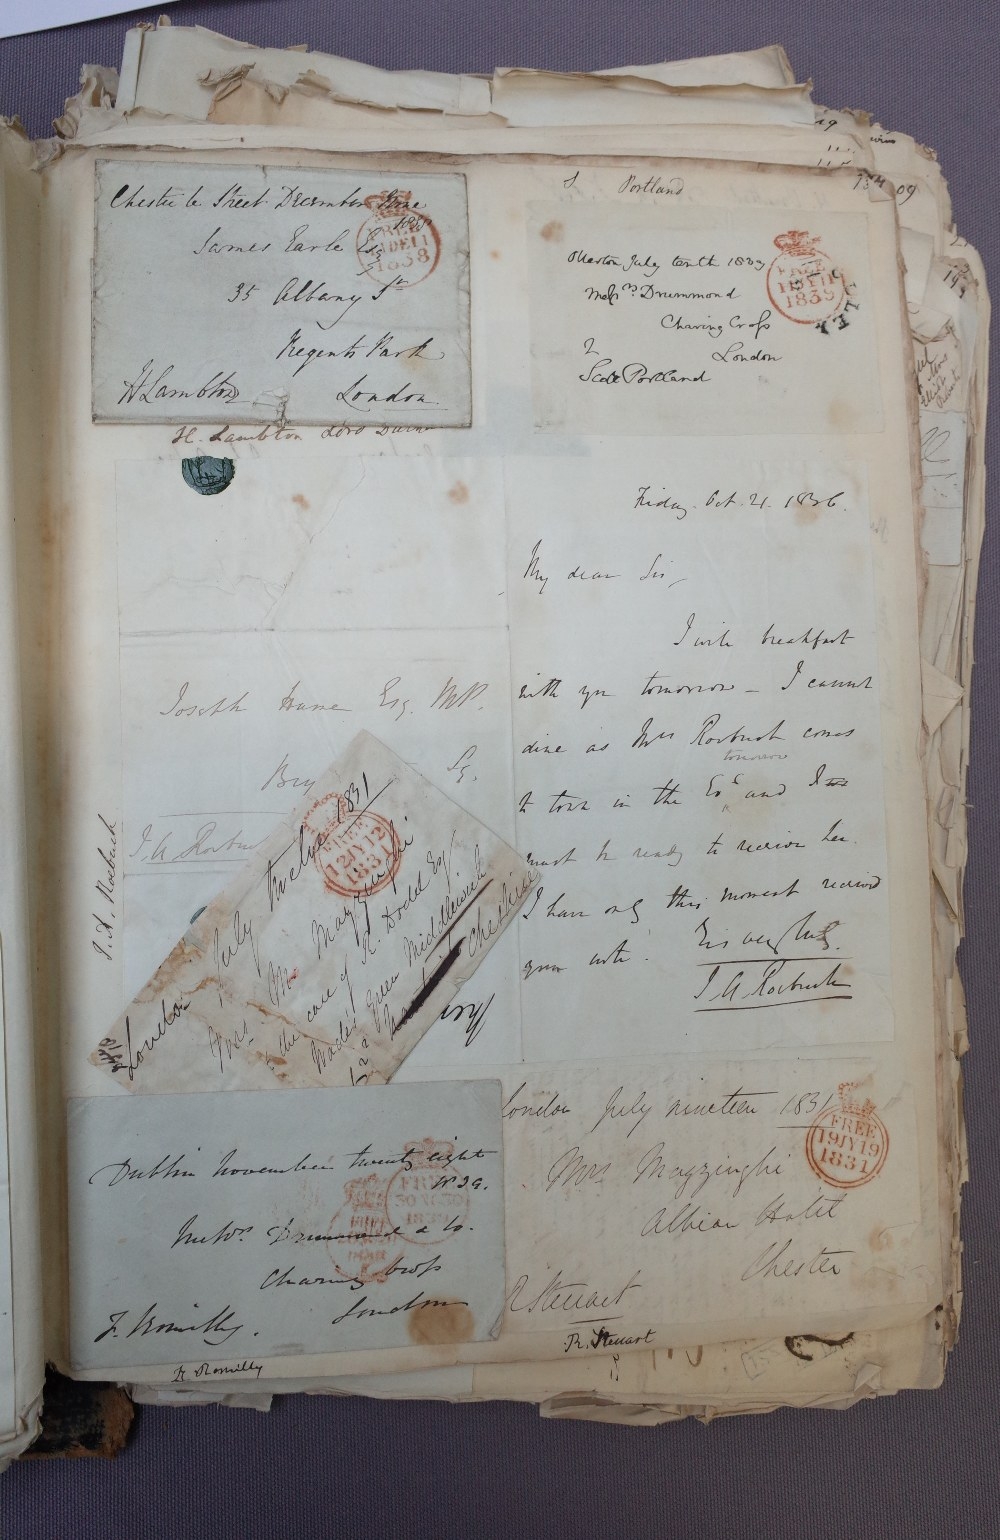 Chester le Street December
1838
James Earle Esq
35 Albany St
Regents Park
London
H Lambton
FREE
11 DE 11
1838
H. Lambton
Portland
Ollerton July tenth 1839
Messrs Drummond
Charing Cross
London
Scott Portland
FREE
11 JY 11
1839
Friday. Oct. 21. 1836.
My dear Sir,
I will breakfast
with you tomorrow – I cannot
dine as Mrs Roebuck comes
tomorrow
to town in the and I
must be ready to receive her.
I have only this moment received
your note.
J A Roebuck
Joseph Hume Esq. MP.
Sq.
J. A. Roebuck
J. A. Roebuck
London July twelve 1831
Mrs Mazzinghi
to the care of R. Dodd Esq
Green Middlewich
Cheshire
FREE
12 JY 12
1831
Dublin November twenty eight
Messrs Drummond & Co.
Charing Cross
London
F. Romilly.
FREE
30 NO 30
1839
F. Romilly
London July nineteen 1831
Mrs Mazzinghi
Albion Hotel
Chester
R Steuart
FREE
19 JY 19
1831
R. Steuart